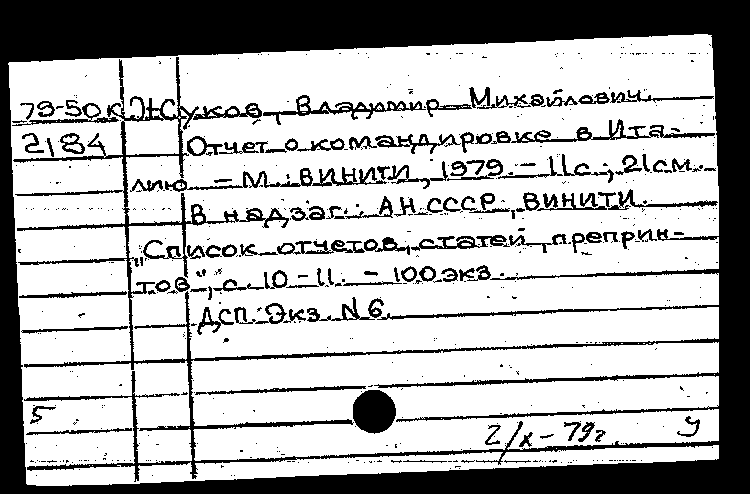 79-50к Жуков, Владимир Михайлович.
2184 Отчет о командировке в Ита-
лию. – М.: ВИНИТИ, 1979. – 11с.; 21см.
В надзаг.: АН СССР, ВИНИТИ.
"Список отчетов, статей, преприн-
тов", с. 10-11. – 100экз.
Дсп. Экз. N6.
5
2/х-79г. У